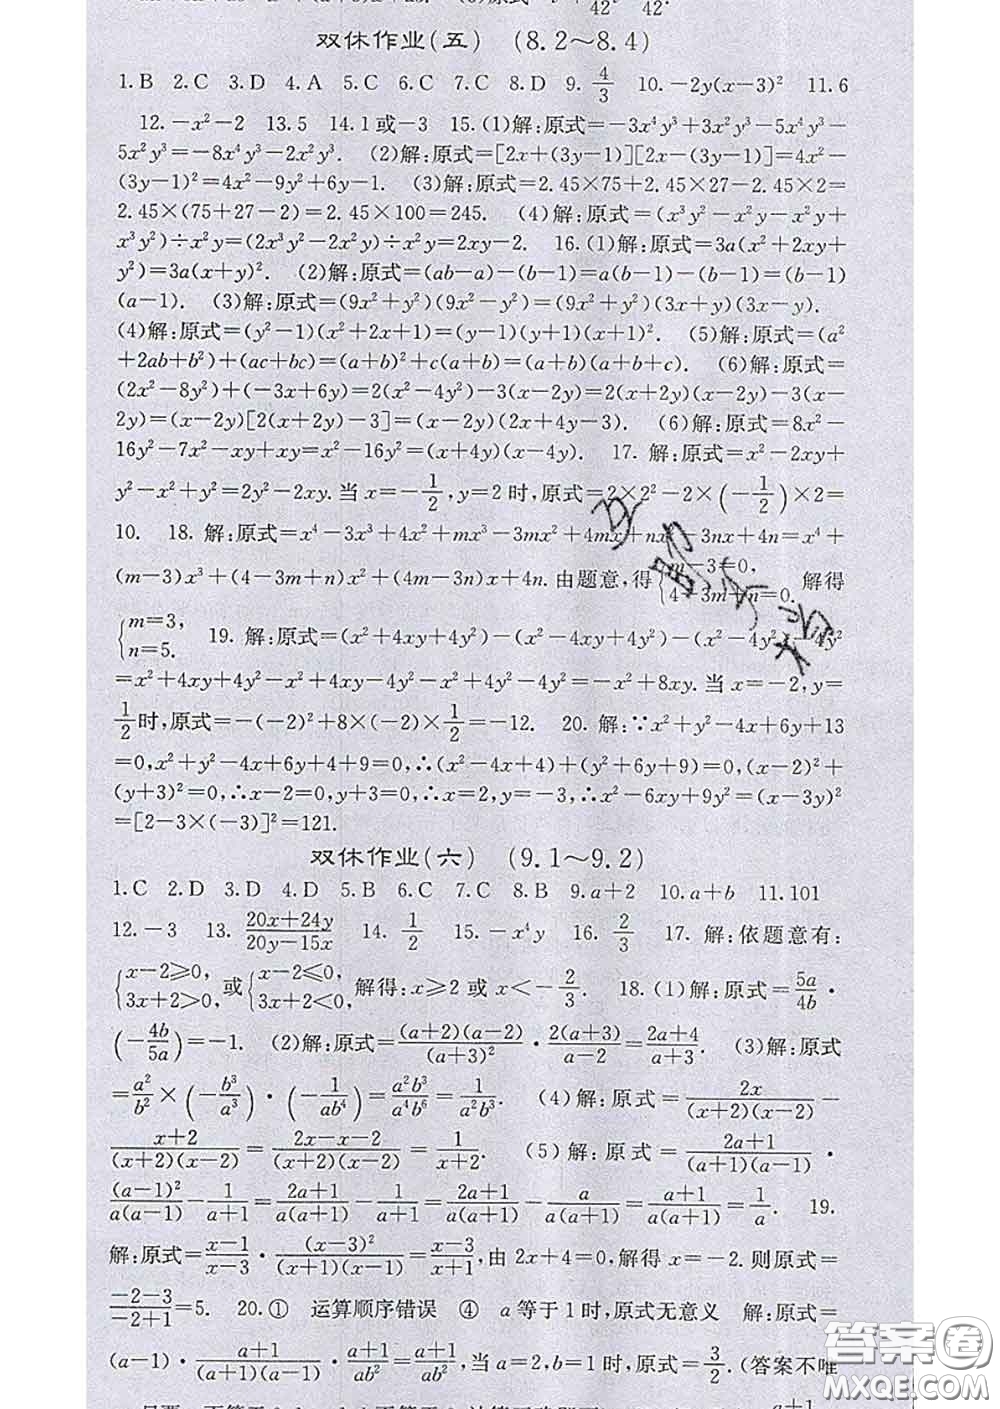 双休作业(五) (8.2～8.4)
1.B 2.C 3.D 4.A 5.C 6.C 7.C 8.D 9. 4/3 10.－2y(x－3)² 11.6
12.－x²－2 13.5 14.1或－3 15.(1)解:原式＝－3x⁴y³＋3x²y³－5x⁴y³－
5x²y³＝－8x⁴y³－2x²y³. (2)解:原式＝[2x＋(3y－1)][2x－(3y－1)]＝4x²－
(3y－1)²＝4x²－9y²＋6y－1. (3)解:原式＝2.45×75＋2.45×27－2.45×2＝
2.45×(75＋27－2)＝2.45×100＝245. (4)解:原式＝(x³y²－x²y－x²y＋
x³y²)÷x²y＝(2x³y²－2x²y)÷x²y＝2xy－2. 16.(1)解:原式＝3a(x²＋2xy＋
y²)＝3a(x＋y)². (2)解:原式＝(ab－a)－(b－1)＝a(b－1)－(b－1)＝(b－1)
(a－1). (3)解:原式＝(9x²＋y²)(9x²－y²)＝(9x²＋y²)(3x＋y)(3x－y).
(4)解:原式＝(y²－1)(x²＋2x＋1)＝(y－1)(y＋1)(x＋1)². (5)解:原式＝(a²
＋2ab＋b²)＋(ac＋bc)＝(a＋b)²＋c(a＋b)＝(a＋b)(a＋b＋c). (6)解:原式＝
(2x²－8y²)＋(－3x＋6y)＝2(x²－4y²)－3(x－2y)＝2(x＋2y)(x－2y)－3(x－
2y)＝(x－2y)[2(x＋2y)－3]＝(x－2y)(2x＋4y－3). (6)解:原式＝8x²－
16y²－7x²－xy＋xy＝x²－16y²＝(x＋4y)(x－4y). 17. 解:原式＝x²－2xy＋
y²－x²＋y²＝2y²－2xy.当x＝－1/2,y＝2时,原式＝2×2²－2×(－1/2)×2＝
10. 18. 解:原式＝x⁴－3x³＋4x²＋mx³－3mx²＋4mx＋nx²－3nx＋4n＝x⁴＋
(m－3)x³＋(4－3m＋n)x²＋(4m－3n)x＋4n.由题意,得{m－3＝0, 4－3m＋n＝0. 解得
{m＝3, n＝5. 19. 解:原式＝(x²＋4xy＋4y²)－(x²－4xy＋4y²)－(x²－4y²)－4y²
＝x²＋4xy＋4y²－x²＋4xy－4y²－x²＋4y²－4y²＝－x²＋8xy.当x＝－2,y＝
1/2时,原式＝－(－2)²＋8×(－2)×1/2＝－12. 20. 解:∵x²＋y²－4x＋6y＋13
＝0,x²＋y²－4x＋6y＋4＋9＝0,∴(x²－4x＋4)＋(y²＋6y＋9)＝0,(x－2)²＋
(y＋3)²＝0,∴x－2＝0,y＋3＝0,∴x＝2,y＝－3,∴x²－6xy＋9y²＝(x－3y)²
＝[2－3×(－3)]²＝121.
双休作业(六) (9.1～9.2)
1.C 2.D 3.D 4.D 5.B 6.C 7.C 8.B 9.a＋2 10.a＋b 11.101
12.－3 13. (20x＋24y)/(20y－15x) 14. 1/2 15.－x⁴y 16. 2/3 17. 解:依题意有:
{x－2≥0, 3x＋2＞0, 或{x－2≤0, 3x＋2＜0, 解得:x≥2或x＜－2/3. 18.(1)解:原式＝5a/4b·
(－4b/5a)＝－1. (2)解:原式＝(a＋2)(a－2)/(a＋3)²·2(a＋3)/(a－2)＝(2a＋4)/(a＋3). (3)解:原式
＝a²/b²×(－b³/a³)·(－1/ab⁴)＝a²b³/a⁴b⁶＝1/a²b³. (4)解:原式＝2x/(x＋2)(x－2)－
(x＋2)/(x＋2)(x－2)＝(2x－x－2)/(x＋2)(x－2)＝1/(x＋2). (5)解:原式＝(2a＋1)/(a＋1)(a－1)·
(a－1)²/a(a－1)－1/(a＋1)＝(2a＋1)/a(a＋1)－1/(a＋1)＝(2a＋1)/a(a＋1)－a/a(a＋1)＝(a＋1)/a(a＋1)＝1/a. 19.
解:原式＝(x－1)/(x－3)·(x－3)²/(x＋1)(x－1)＝(x－3)/(x＋1),由2x＋4＝0,解得x＝－2.则原式＝
(－2－3)/(－2＋1)＝5. 20.① 运算顺序错误 ④ a等于1时,原式无意义 解:原式＝
(a－1)·(a＋1)/(a＋1)(a－1)·(a＋1)/ab²＝(a＋1)/ab²,当a＝2,b＝1时,原式＝3/2.(答案不唯
答案圈
MXQE.COM